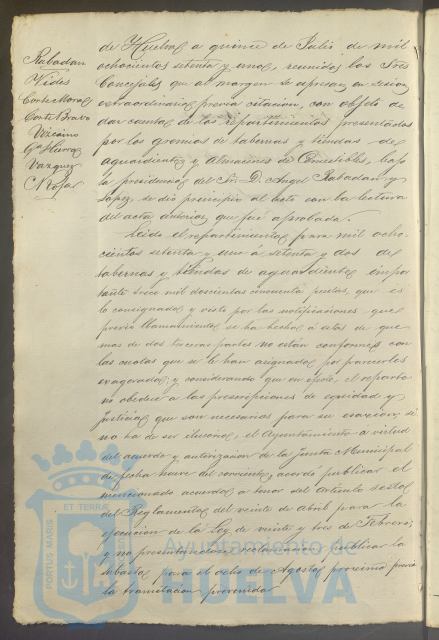 Rabadan
Vides
Corte Moral
Corte Bravo
Vizcaino
Ga Hierro
Vazquez
de Huelva a quince de Julio de mil
ochocientos setenta y uno, reunidos los Sres
Concejales que al margen se espresan en sesion
extraordinaria previa citacion, con objeto de
dar cuenta de los repartimientos presentados
por los gremios de tabernas y tiendas de
aguardientes y almacenes de Comestibles, bajo
la presidencia del Sr. D. Angel Rabadan y
Lopez, se dio principio al acto con la lectura
del acta anterior, que fué aprobada.
Leido el repartimiento para mil ocho-
cientos setenta y uno á setenta y dos de
tabernas y tiendas de aguardientes impor-
tante trece mil doscientas cincuenta pesetas, que es
lo consignado y visto por las notificaciones que
previo llamamiento se ha hecho á estos de que
mas de dos terceras partes no están conformes con
las cuotas que se le han asignado por parecerles
exageradas, y considerando que en efecto, el reparto
no obedece a las prescripciones de equidad y
justicia que son necesarias para su exaccion, si
no ha de ser ilusoria, el Ayuntamiento a virtud
del acuerdo y autorizacion de la Junta Municipal
de fecha nueve del corriente, acordó publicar el
mencionado acuerdo a tenor del articulo sesto
del Reglamento del veinte de Abril para la
ejecucion de la Ley de veinte y tres de Febrero,
y no presentandose reclamacion publicar la
subasta para el ocho de Agosto proximo previa
la tramitacion prevenida
PORTUS MARIS
ET TERRÆ
Ayuntamiento de
HUELVA